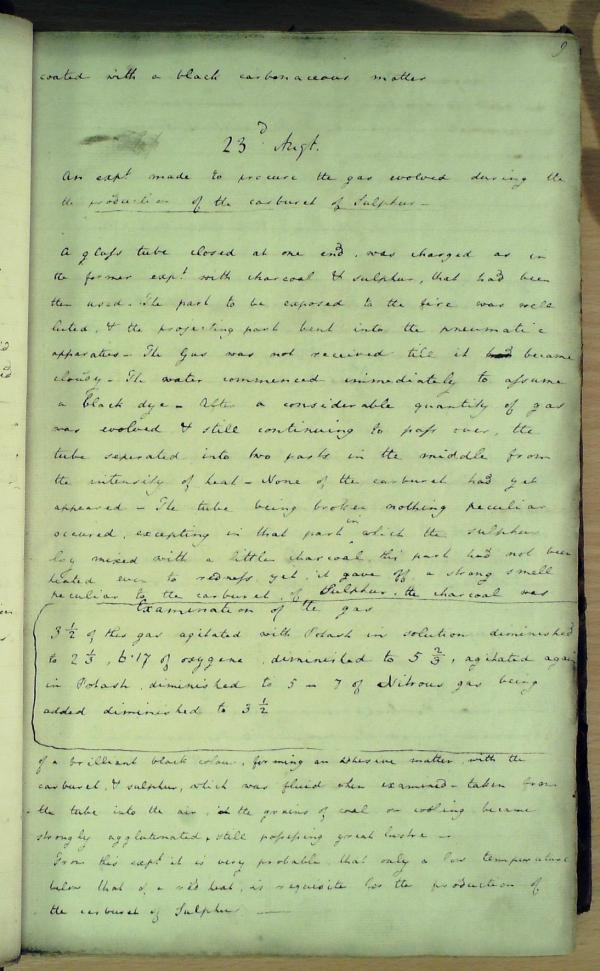 9
coated with a black carbonaceous matter
23d Augt.
An expt. made to procure the gas evolved during the
the production of the carburet of Sulphur –
A glass tube closed at one end, was charged as in
the former expt. with charcoal & sulphur, that had been
then used. The part to be exposed to the fire was well
luted, & the projecting part bent into the pneumatic
apparatus – The Gas was not received till it became
cloudy – The water commenced immediately to assume
a black dye – After a considerable quantity of gas
was evolved & still continuing to pass over, the
tube seperated into two parts in the middle from
the intensity of heat – None of the carburet had yet
appeared – The tube being broken nothing peculiar
occured, excepting in that part in which the sulphur
lay mixed with a little charcoal, this part had not been
heated even to redness, yet it gave off a strong smell
peculiar to the carburet of Sulphur, the charcoal was
Examination of the gas
3 1/2 of this gas agitated with Potash in solution diminished
to 2 1/3, 17 of oxygene, diminished to 5 2/3, agitated again
in Potash, diminished to 5 – 7 of Nitrous gas being
added diminished to 3 1/2
of a brilliant black colour, forming an adhesive matter with the
carburet, & sulphur, which was fluid when examined – taken from
the tube into the air, the grains of coal on cooling became
strongly agglutenated, still possessing great lustre –
From this expt. it is very probable, that only a low temperature
below that of a red heat, is requisite for the production of
the carburet of Sulphur –